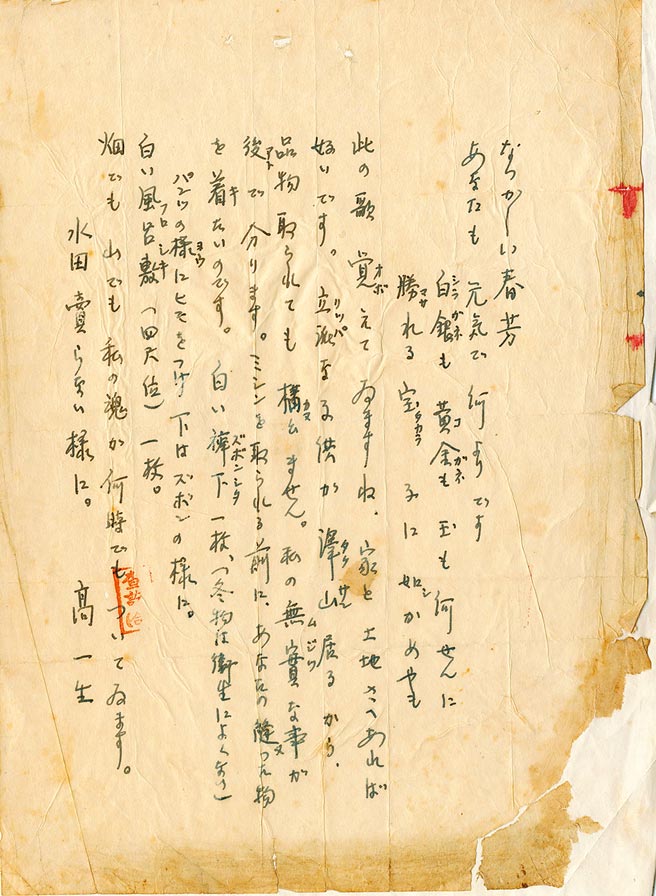 なつかしい春芳
あなたも 元気で 何よりです
白銀も 黄金も 玉も 何せんに
シラガネ コガネ
勝れる 宝 子に 如かめやも
マサ タカラ シ
此の歌 覚えて ゐますね、家と土地さへあれば
オボ
好いです。立派な子供が 澤山居るから、
リッパ タク サン
品物 取られても 構ひません。私の無實な事が
カマ ムジツ
後で分ります。ミシンを取られる前に、あなたの縫った物
アト ヌ
を着たいのです。白い褲下一枚、(冬物は衛生によくない)
キ ズボンシタ
パンツの様にヒモをつけ下はズボンの様に。
ヨウ
白い風呂敷(四尺位)一枚。
フロシキ
畑でも 山でも 私の魂が何時でもついてゐます。
水田 賣らない様に。
高一生